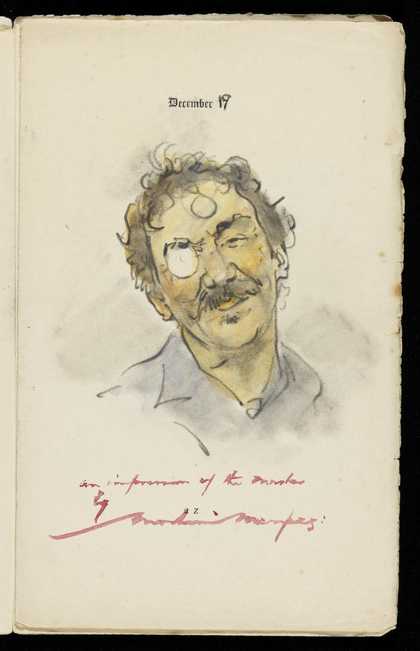 December 19
an impression of the master
by
Mortimer Menpes: